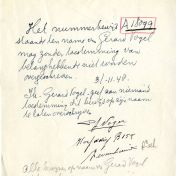 Het nummerbewijs A 18099
staande ten name van Gerard Vogel
mag zonder toestemming van
belanghebbende niet worden
overgeschreven.
3/-11-48.
Th. Gerard Vogel geef aan niemand
toestemming dit bewijs op zijn naam
te laten overschrijven
Vogel
alle bewijzen op naam v Gerard Vogel